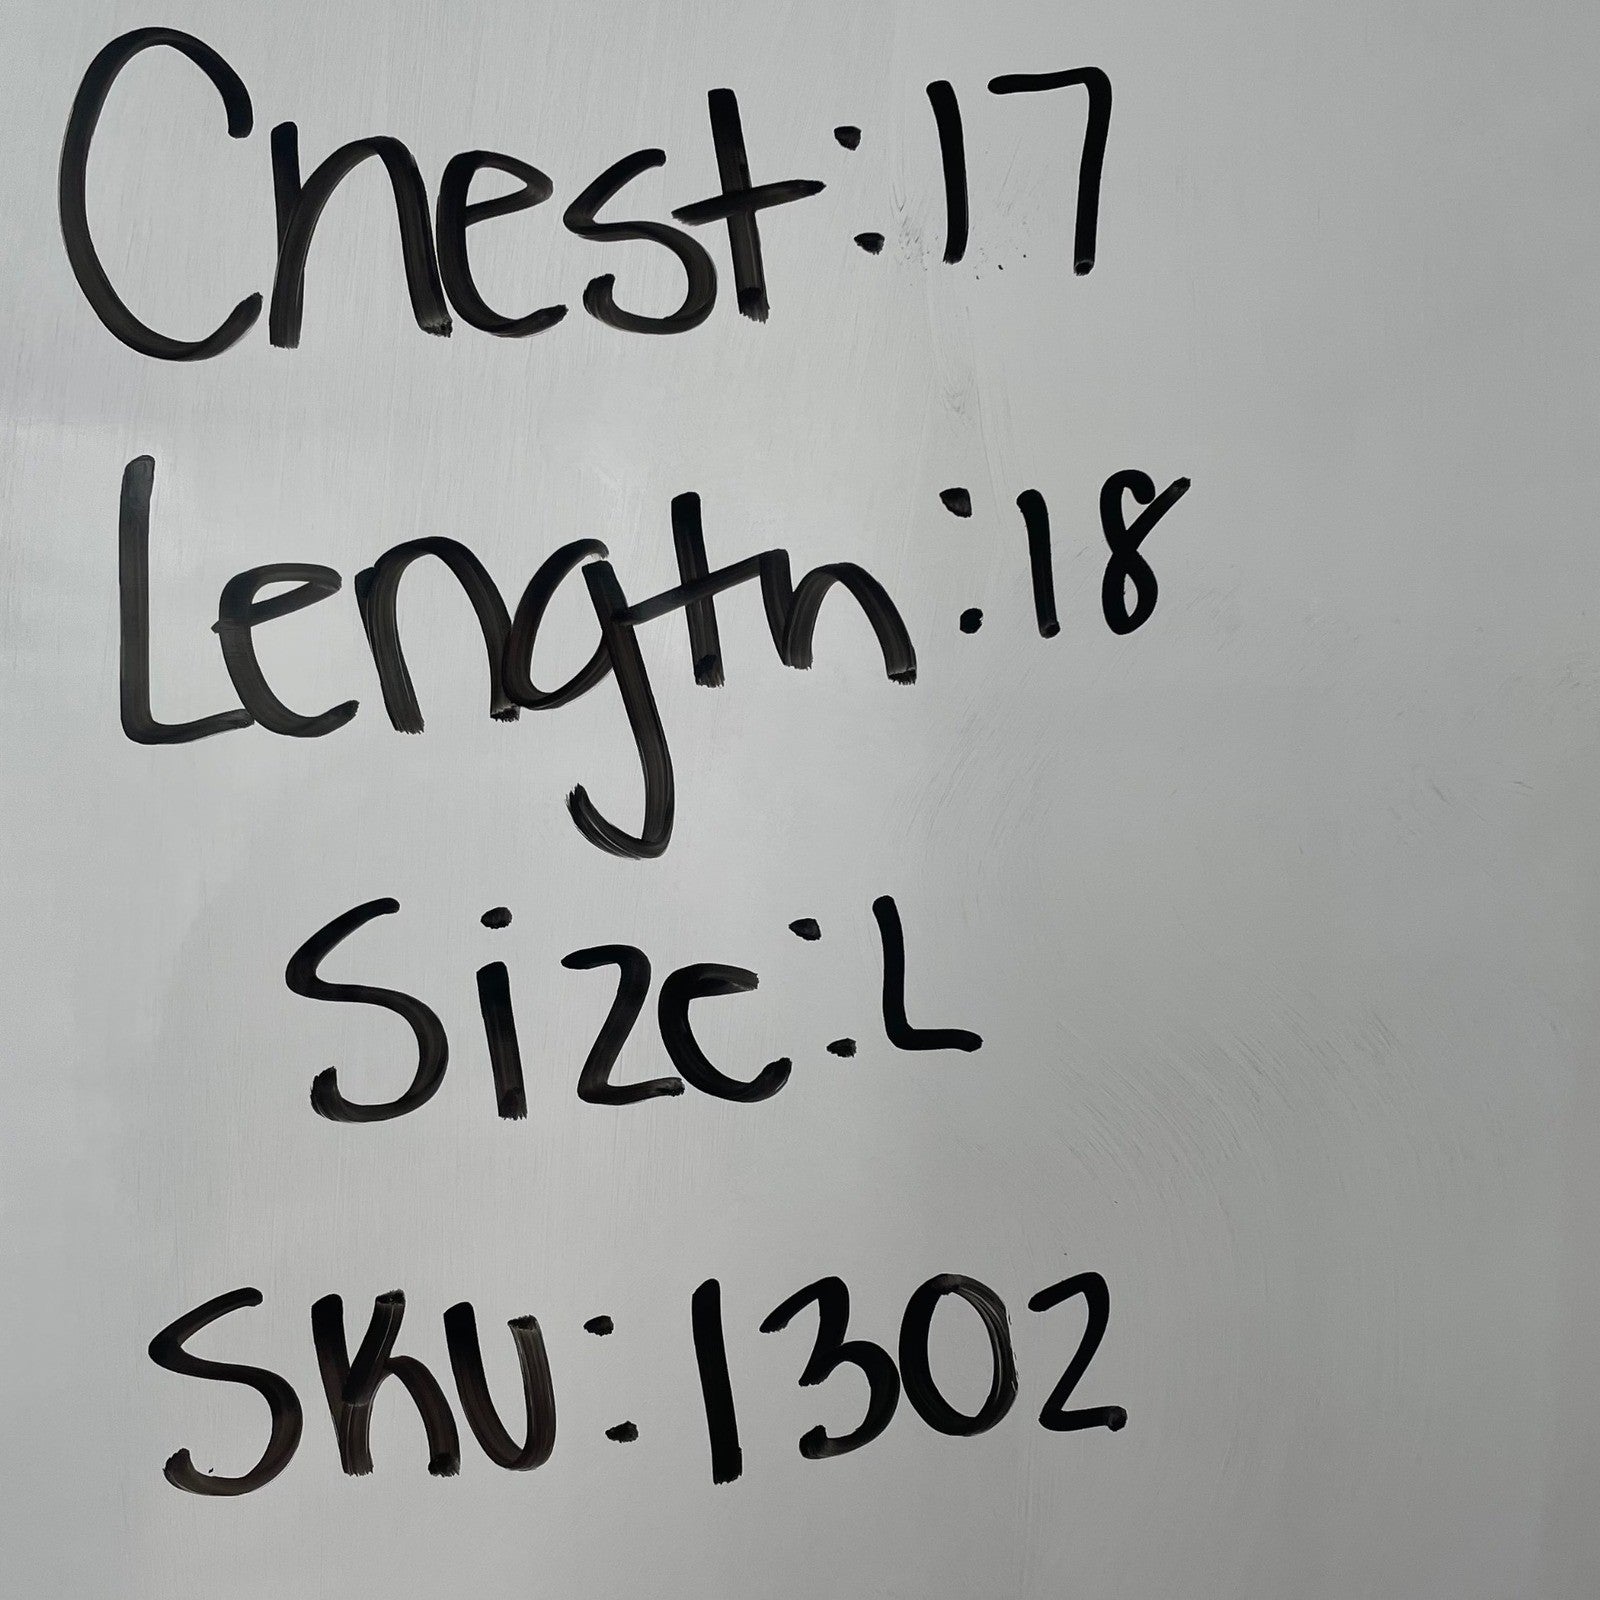 Chest: 17
Length: 18
Size: L
SKU: 1302